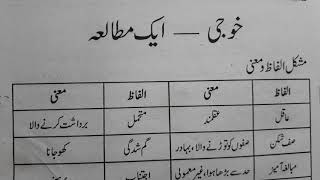 خوجی — ایک مطالعہ
مشکل الفاظ و معنی
الفاظ معنی الفاظ معنی
عاقل عقلمند متحمل برداشت کرنے والا
صف شکن صفوں کو توڑنے والا، بہادر گم شدگی کھو جانا
مبالغہ آمیز حد سے بڑھا ہوا، غیر معمولی اجتناب